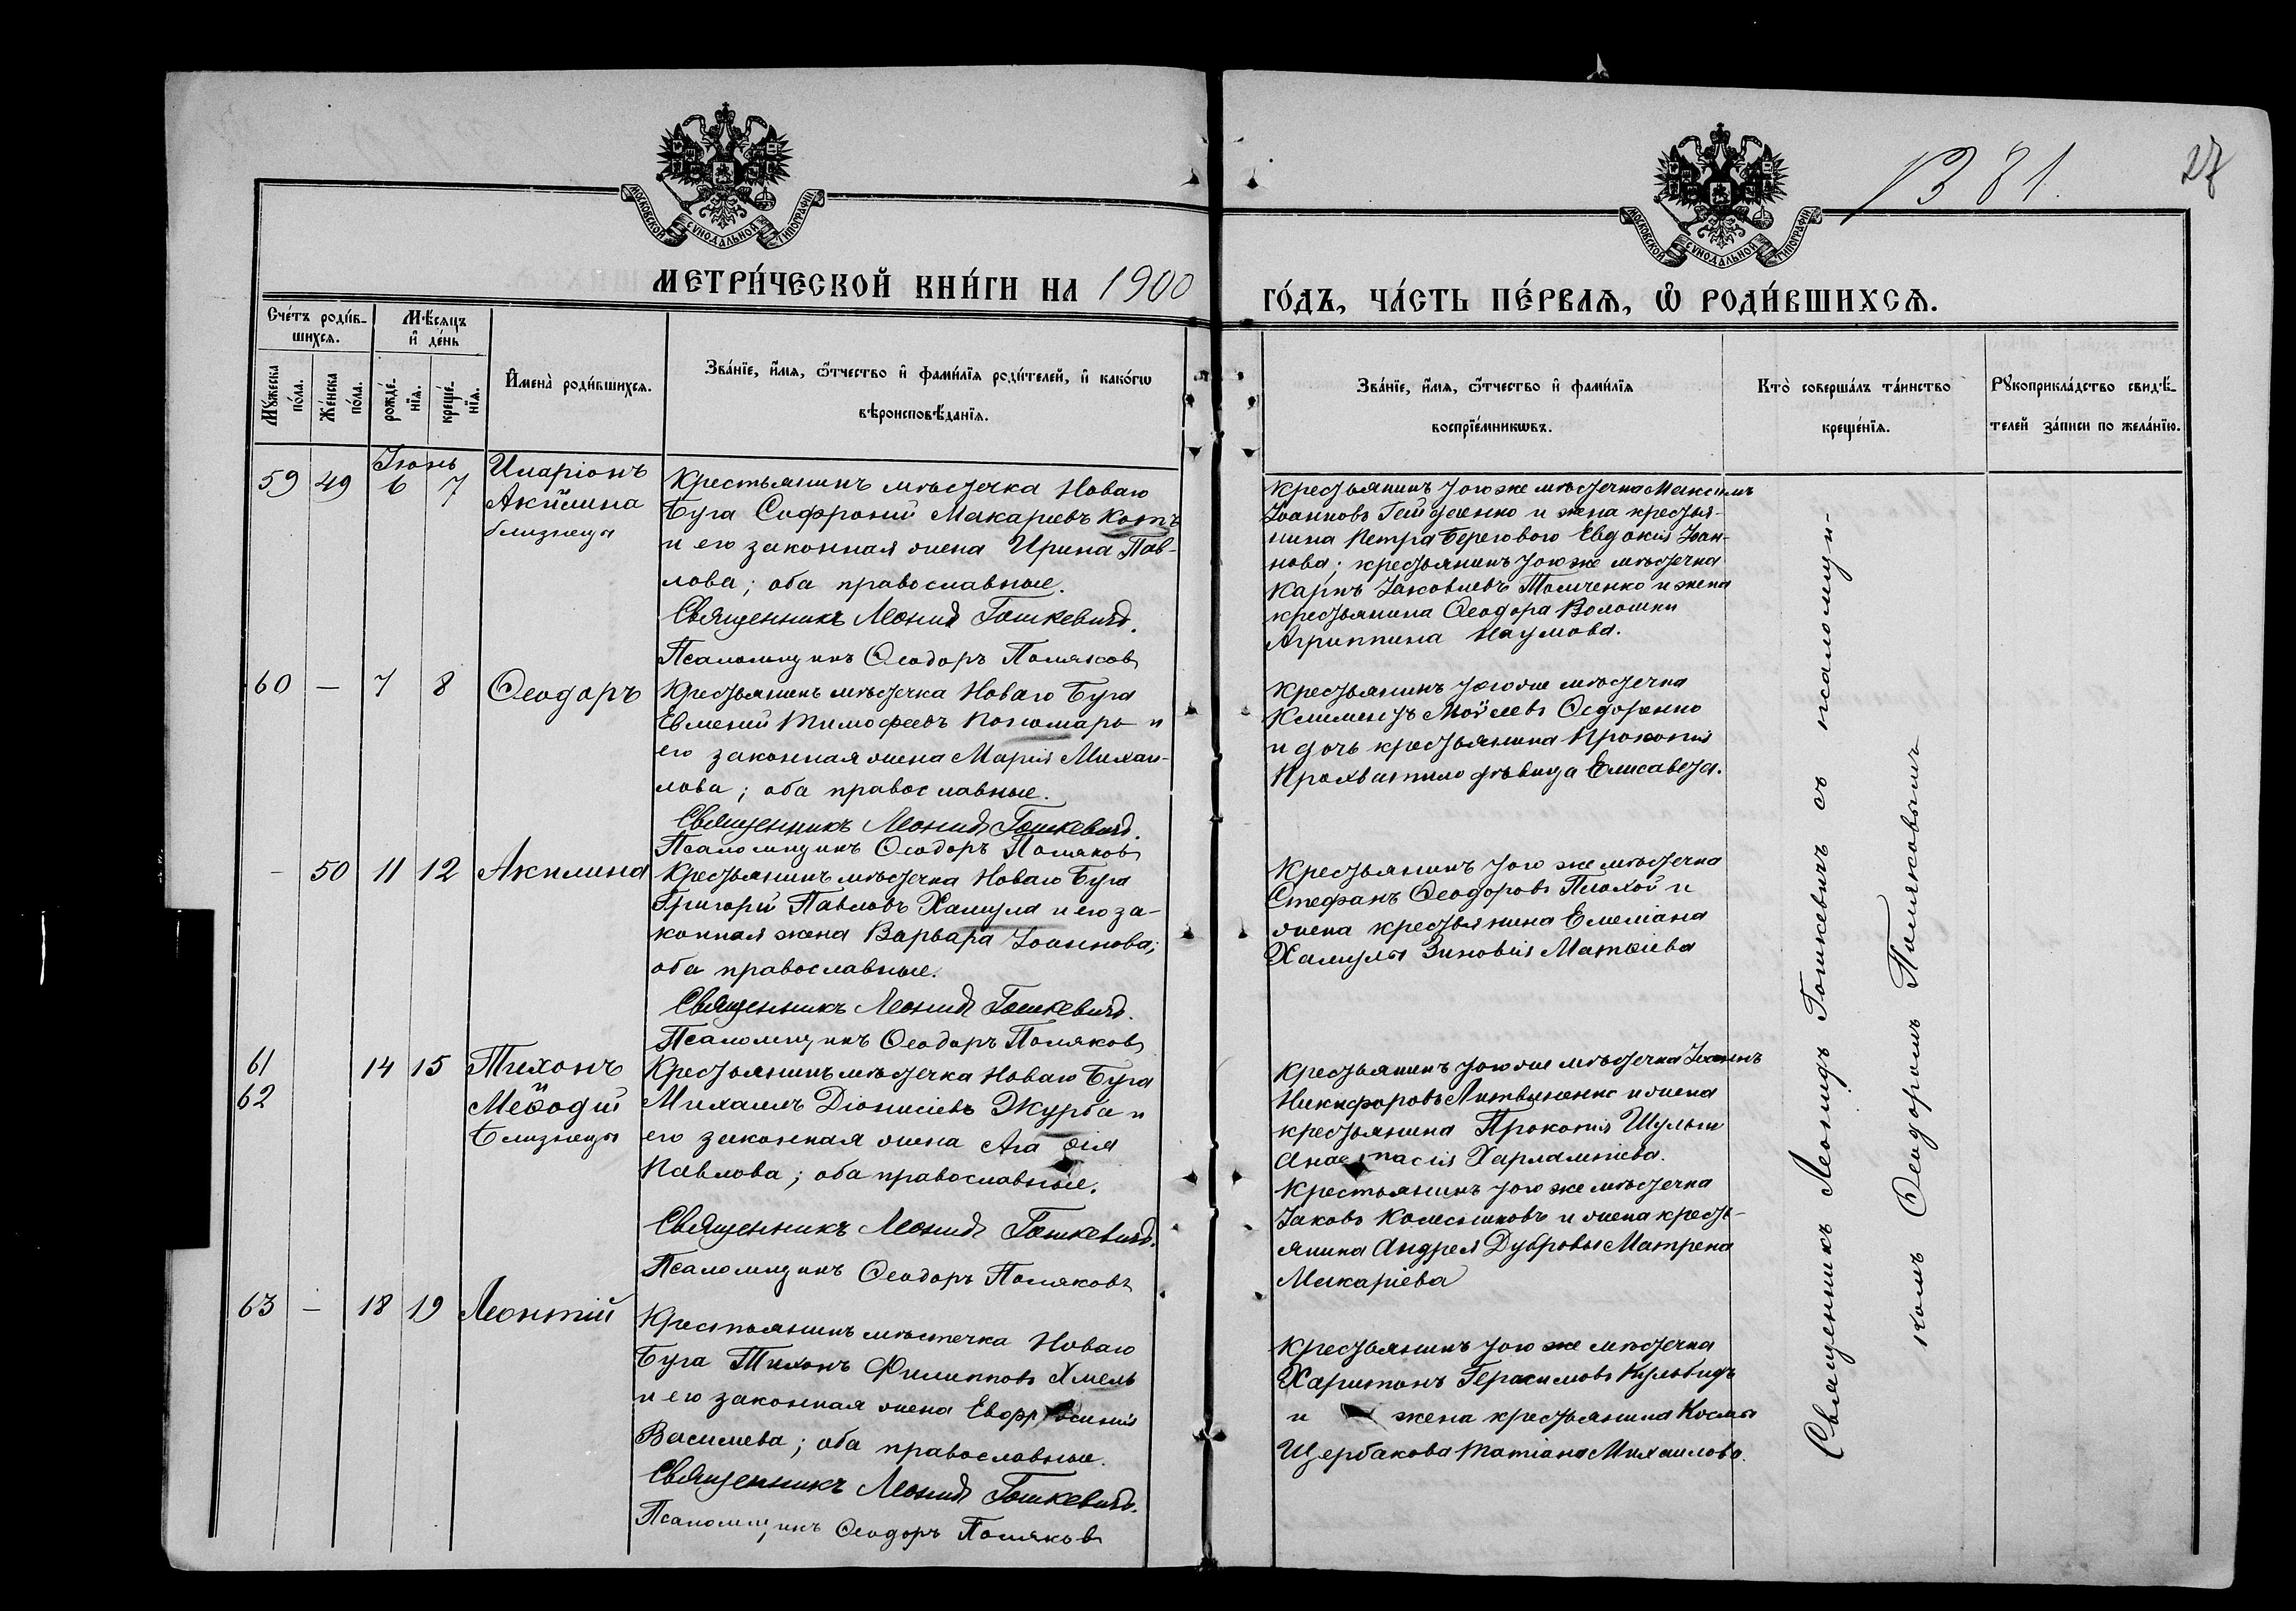 МОСКОВСКОЙ СѴНОДАЛЬНОЙ ТИПОГРАФІИ
МОСКОВСКОЙ СѴНОДАЛЬНОЙ ТИПОГРАФІИ
1381.
27
МЕТРИ́ЧЕСКОЙ КНИ́ГИ НА 1900
ГО́ДЪ, ЧА́СТЬ ПЕ́РВАѦ, Ѡ҆ РОДИ́ВШИХСѦ.
Сче́тъ роди́в-
шихсѧ.
Мꙋ́жеска по́ла.
Же́нска по́ла.
Мѣ́сѧцъ
и҆ де́нь
рожде́-
нїѧ.
креще́-
нїѧ.
И҆мена̀ роди́вшихсѧ.
Зва́нїе, и҆́мѧ, ѻ҆́тчество и҆ фами́лїѧ роди́телей, и҆ како́гѡ
вѣроисповѣ́данїѧ.
Зва́нїе, и҆́мѧ, ѻ҆́тчество и҆ фами́лїѧ
воспрїе́мникѡвъ.
Кто̀ соверша́лъ та́инство
креще́нїѧ.
Рꙋкоприкла́дство свидѣ́-
телей за́писи по жела́нїю.
Іюнь
59 49 6 7
Иларіонъ
Акилина
близнецы
Крестьянинъ мѣстечка Новаго
Буга Софроній Макаріевъ Котъ
и его законная жена Ирина Пав-
лова; оба православные.
Священникъ Леонидъ Гошкевичъ.
Псаломщикъ Ѳеодоръ Поляковъ
Крестьянинъ того же мѣстечка Максимъ
Іоанновъ и жена крестья-
нина Петра Берегового Евдокія Іоан-
нова; крестьянинъ того же мѣстечка
Карпъ Іаковлевъ Толченко и жена
крестьянина Ѳеодора Волошки
Агриппина Наумова.
60 — 7 8 Ѳеодоръ
Крестьянинъ мѣстечка Новаго Буга
Евмений Тимофеевъ Пономарь и
его законная жена Марія Михаи-
лова; оба православные.
Священникъ Леонидъ Гошкевичъ.
Псаломщикъ Ѳеодоръ Поляковъ
Крестьянинъ того же мѣстечка
Климентъ Моѵсеевъ Ѳедоренко
и дочь крестьянина Прокопія
Прохватило дѣвица Елисавета.
- 50 11 12 Акилина
Крестьянинъ мѣстечка Новаго Буга
Григорій Павловъ Хамула и его за-
конная жена Варвара Іоаннова;
оба православные.
Священникъ Леонидъ Гошкевичъ.
Псаломщикъ Ѳеодоръ Поляковъ
Крестьянинъ того же мѣстечка
Стефанъ Ѳеодоровъ Плохой и
жена крестьянина Емеліана
Хамулы Зиновія Матѳіева
61 14 15 Тихонъ
62 Меѳодій
Близнецы
Крестьянинъ мѣстечка Новаго Буга
Михаилъ Діонисіевъ Журба и
его законная жена Ага ѳія
Павлова; оба православные.
Священникъ Леонидъ Гошкевичъ.
Псаломщикъ Ѳеодоръ Поляковъ
Крестьянинъ того же мѣстечка Іоаннъ
Никифоровъ Литвиненко и жена
крестьянина Прокопія Шульги
Анастасія Харлампіева.
Крестьянинъ того же мѣстечка
Іаковъ Колесниковъ и жена кресть-
янина Андрея Дубровы Матрена
Макаріева
63 — 18 19 Леонтій
Крестьянинъ мѣстечка Новаго
Буга Тихонъ Филипповъ Хмель
и его законная жена
Василіева; оба православные.
Священникъ Леонидъ Гошкевичъ.
Псаломщикъ Ѳеодоръ Поляковъ
Крестьянинъ того же мѣстечка
Харитонъ Герасимовъ
и жена крестьянина Космы
Щербакова Татіана Михаилова.
Священникъ Леонидъ Гошкевичъ съ псаломщи-
комъ Ѳеодоромъ Поляковымъ